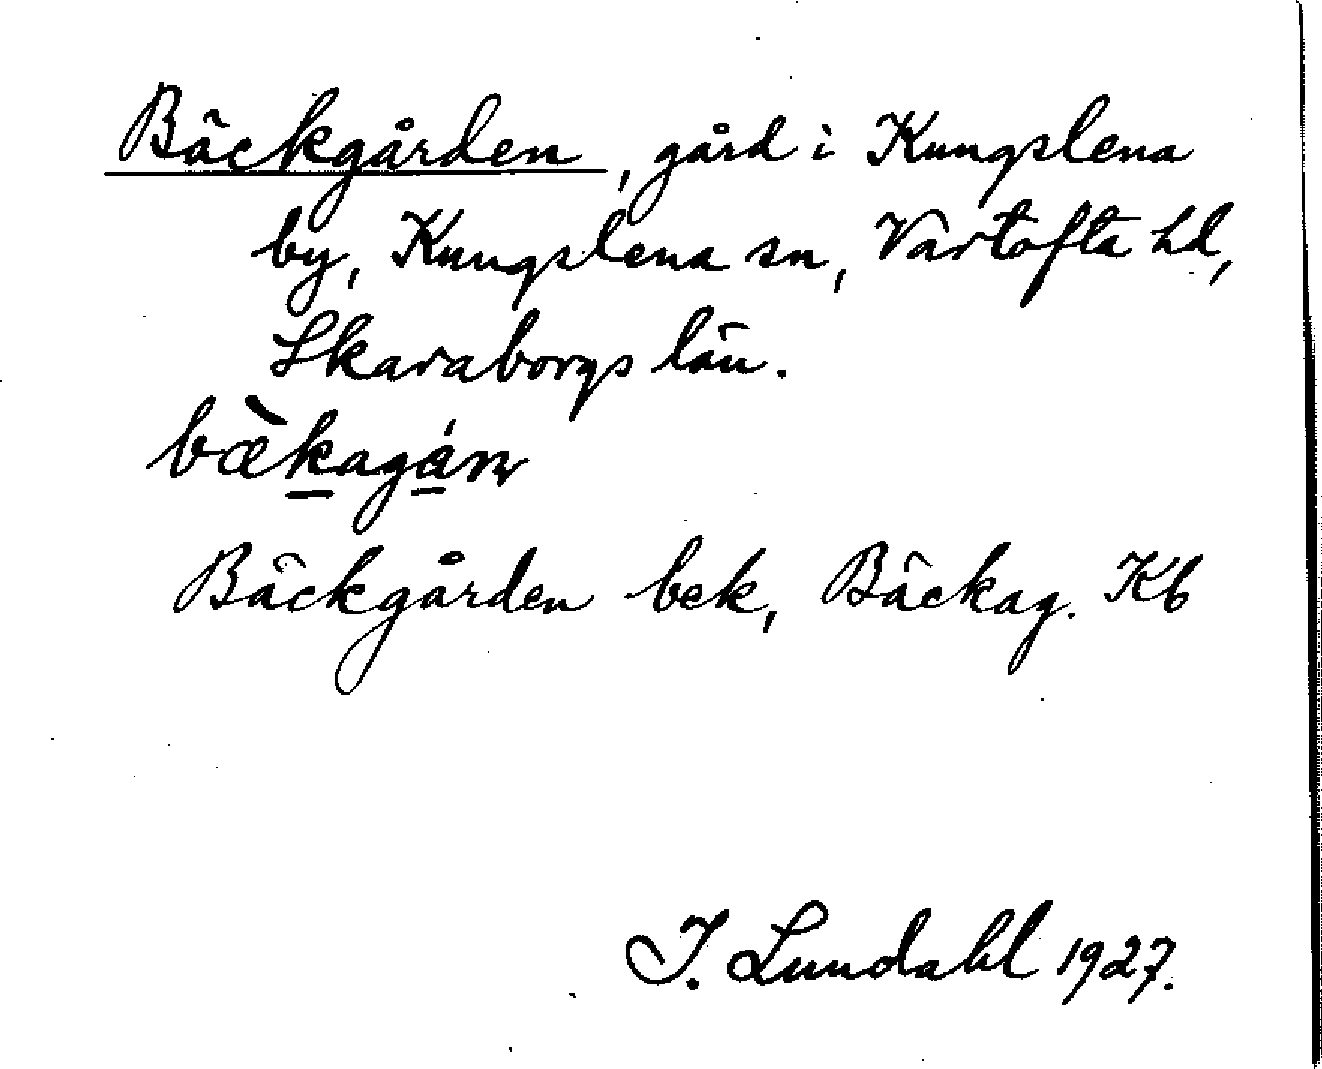 Bäckgården, gård i Kungslena
by, Kungslena sn, Vartofta hd,
Skaraborgs län.
bæ̀kagán
Bäckgården bek, Bäckag. Kb
I. Lundahl 1927.